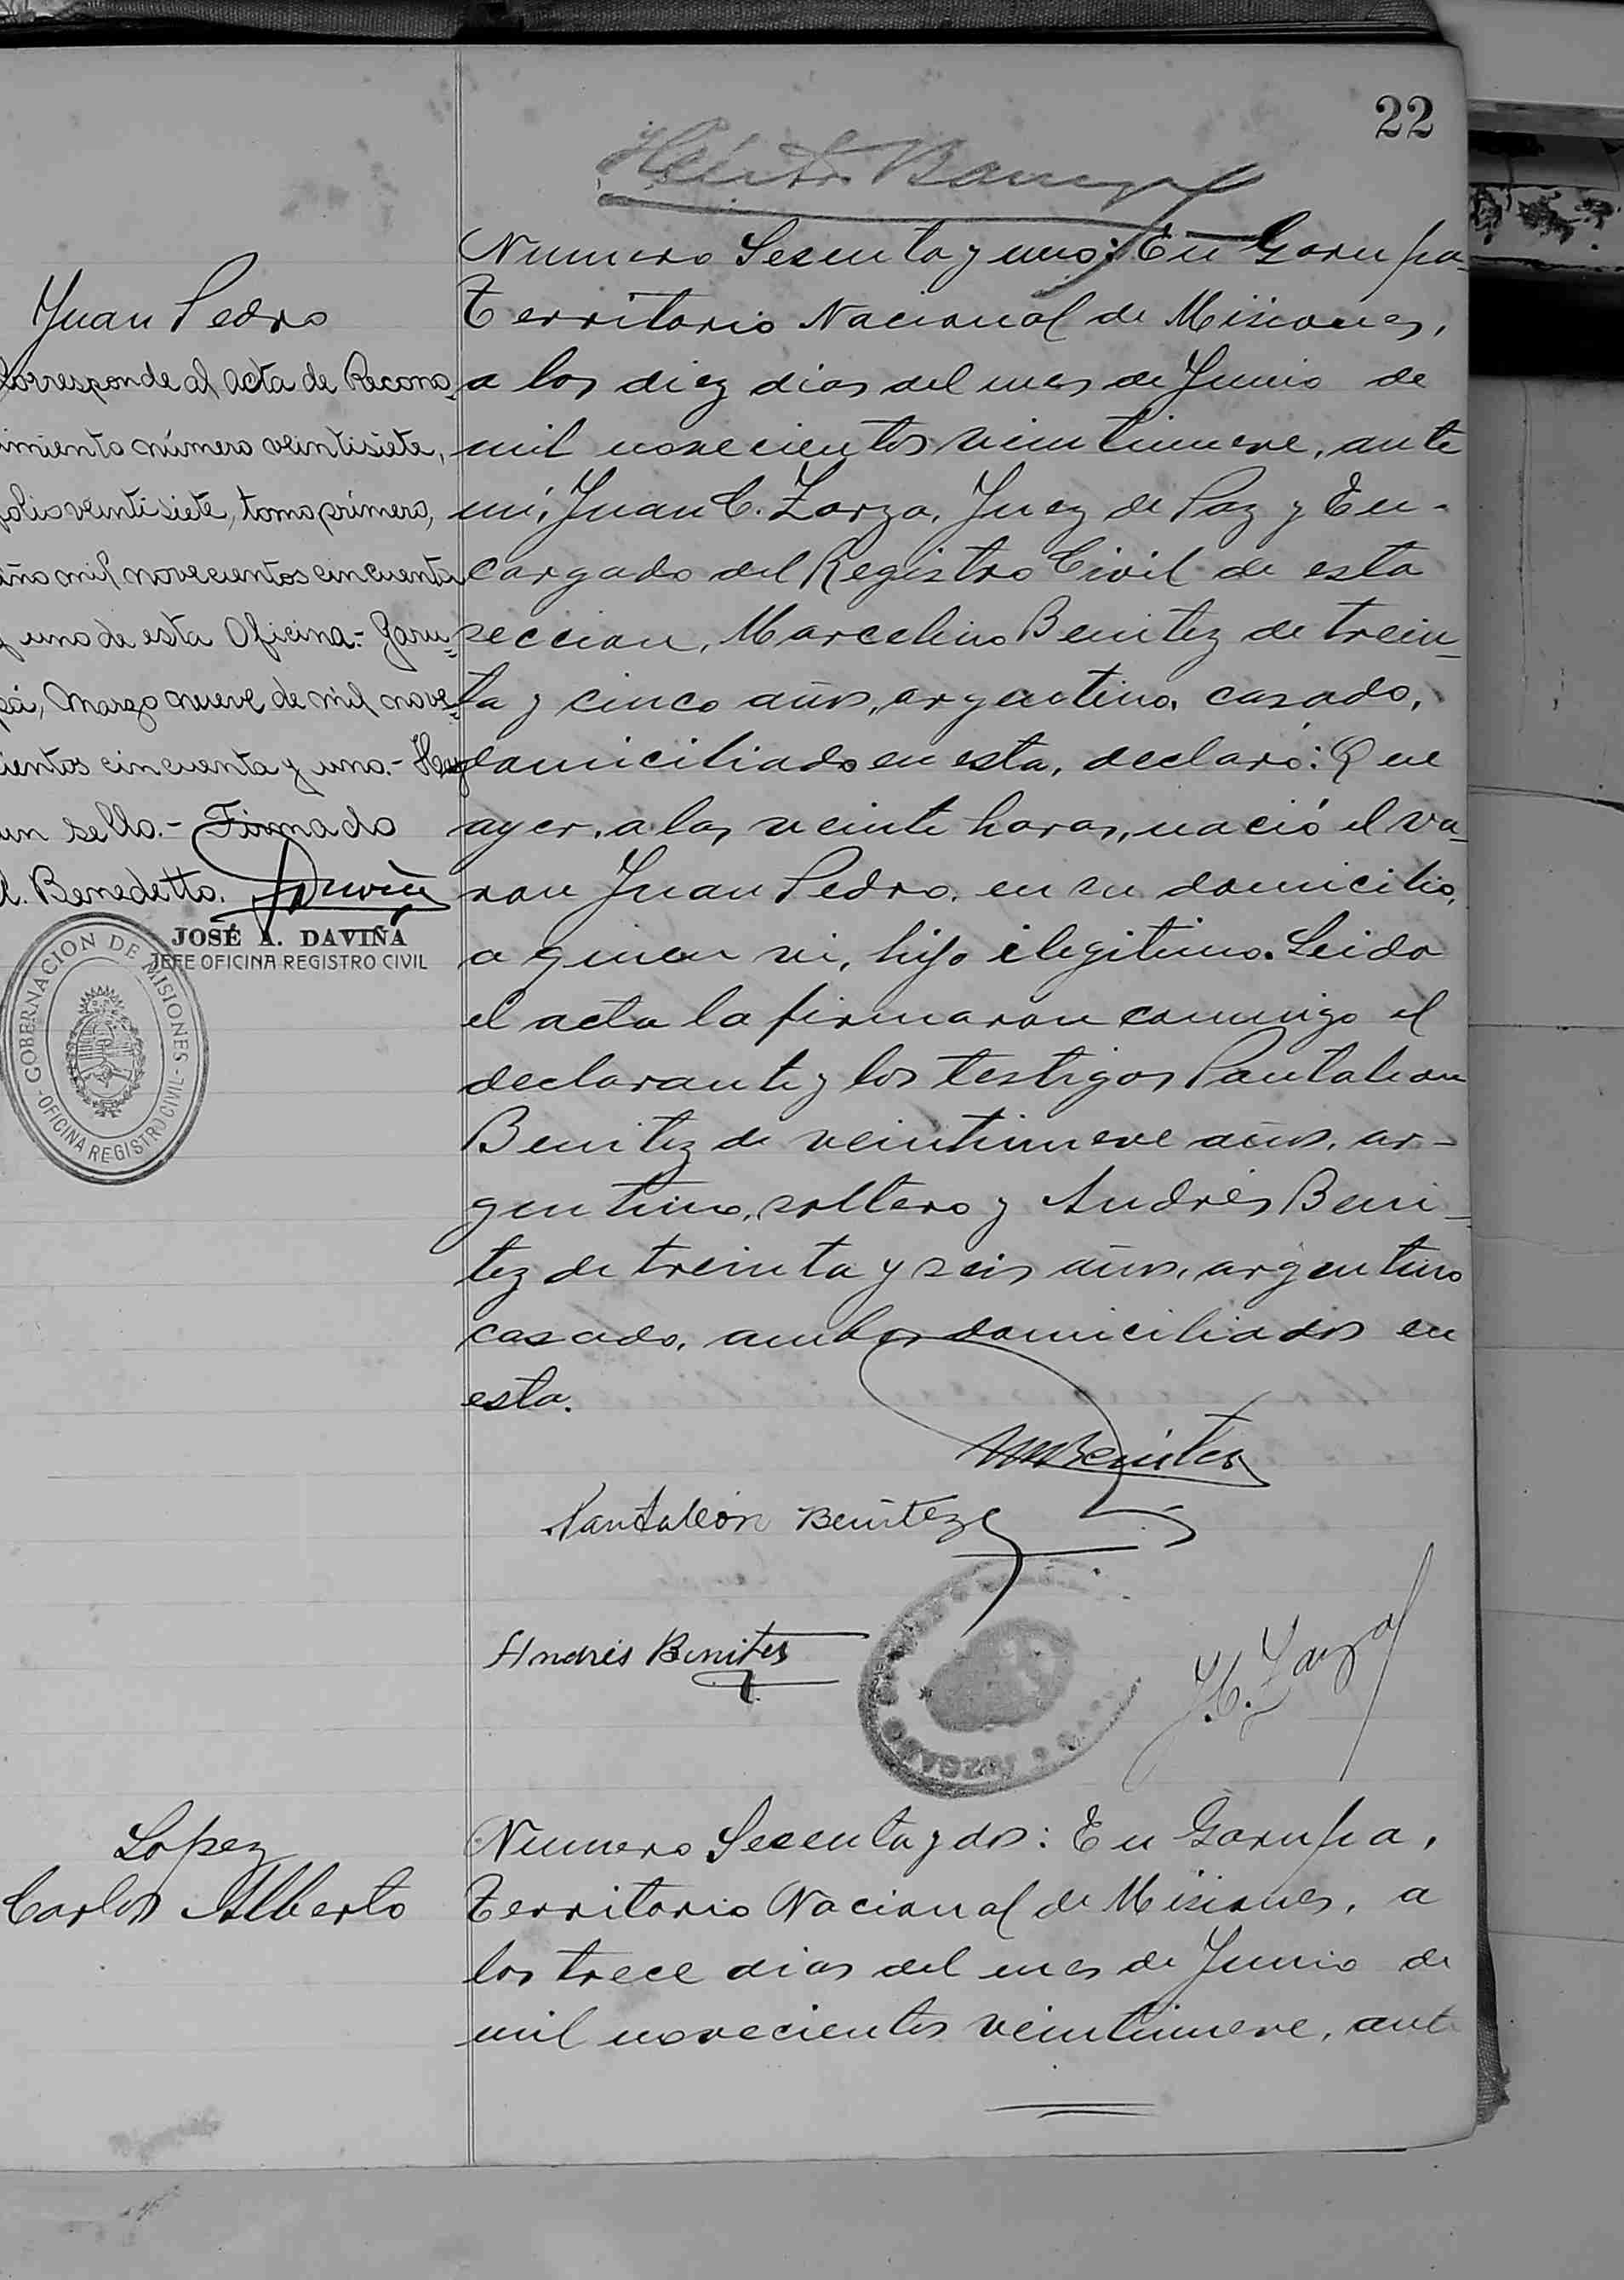 22
Juan Pedro
Corresponde al acta de Recono-
imiento número veintisiete,
folio veintisiete, tomo primero,
año mil novecientos cincuenta
y uno de esta Oficina.- Garu-
pá, Marzo nueve de mil nove-
cientos cincuenta y uno.- Hay
un sello.- Firmado
A. Benedetto.
JOSÉ A. DAVIÑA
JEFE OFICINA REGISTRO CIVIL
GOBERNACION DE MISIONES
-OFICINA REGISTRO CIVIL-
Numero Sesenta y uno: En Garupa-
Territorio Nacional de Misiones,
a los diez dias del mes de Junio de
mil novecientos veintinueve, ante
mí, Juan C. Zarza, Juez de Paz y En-
cargado del Registro Civil de esta
seccion, Marcelino Benitez de trein-
ta y cinco años, argentino, casado,
domiciliado en esta, declaró: Que
ayer, a las veinte horas, nació el va-
ron Juan Pedro, en su domicilio,
a quien vi, hijo ilegitimo. Leida
el acta la firmaron conmigo el
declarante y los testigos Pantaleon
Benitez de veintinueve años, ar-
gentino, soltero y Andrés Beni-
tez de treinta y seis años, argentino
casado, ambos domiciliados en
esta.
MBenitez
Pantaleón Benitez
Andrés Benites
J.C. Zarza
JUZGADO
Lopez
Carlos Alberto
Numero Sesenta y dos: En Garupa,
Territorio Nacional de Misiones, a
los trece dias del mes de Junio de
mil novecientos veintinueve, ante